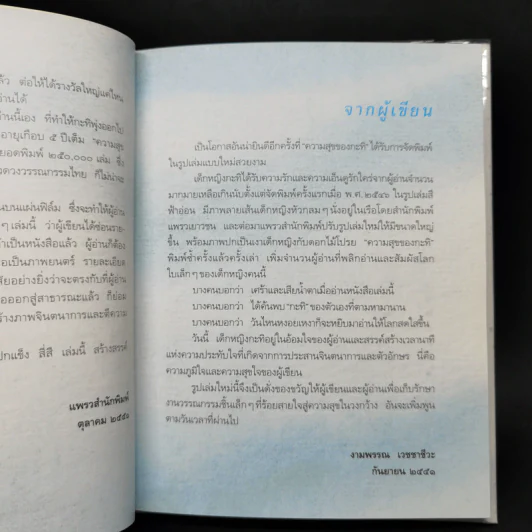 ล้ว ต่อให้ได้รางวัลใหญ่แค่ไหน
อ่านได้
านนี้เอง ที่ทำให้กะทิพุ่งออกไป
อายุเกือบ ๕ ปีเต็ม "ความสุข
ยอดพิมพ์ ๒๕๐,๐๐๐ เล่ม ซึ่ง
งวงวรรณกรรมไทย ก็ไม่น่าจะ
บนแผ่นฟิล์ม ซึ่งจะทำให้ผู้อ่าน
ๆ เล่มนี้ ว่าผู้เขียนได้ซ่อนราย-
าเป็นหนังสือแล้ว ผู้อ่านก็ต้อง
เป็นภาพยนตร์ รายละเอียด
สัยอย่างยิ่งว่าจะตรงกับที่ผู้อ่าน
อออกสู่สาธารณะแล้ว ก็ย่อม
ร้างภาพจินตนาการและตีความ
ปกแข็ง สี่สี เล่มนี้ สร้างสรรค์
แพรวสำนักพิมพ์
ตุลาคม ๒๕๕๑
จากผู้เขียน
เป็นโอกาสอันน่ายินดีอีกครั้งที่ "ความสุขของกะทิ" ได้รับการจัดพิมพ์
ในรูปเล่มแบบใหม่สวยงาม
เด็กหญิงกะทิได้รับความรักและความเอ็นดูรักใคร่จากผู้อ่านจำนวน
มากมายเหลือเกินนับตั้งแต่จัดพิมพ์ครั้งแรกเมื่อ พ.ศ. ๒๕๔๖ ในรูปเล่มสี
ฟ้าอ่อน มีภาพลายเส้นเด็กหญิงหัวกลมๆ นั่งอยู่ในเรือโดยสำนักพิมพ์
แพรวเยาวชน และต่อมาแพรวสำนักพิมพ์ปรับรูปเล่มใหม่ให้มีขนาดใหญ่
ขึ้น พร้อมภาพปกเป็นเงาเด็กหญิงกับดอกไม้โปรย "ความสุขของกะทิ"
พิมพ์ซ้ำครั้งแล้วครั้งเล่า เพิ่มจำนวนผู้อ่านที่พลิกอ่านและสัมผัสโลก
ใบเล็กๆ ของเด็กหญิงคนนี้
บางคนบอกว่า เศร้าและเสียน้ำตาเมื่ออ่านหนังสือเล่มนี้
บางคนบอกว่า ได้ค้นพบ "กะทิ" ของตัวเองที่ตามหามานาน
บางคนบอกว่า วันไหนหงอยเหงาก็จะหยิบมาอ่านให้โลกสดใสขึ้น
วันนี้ เด็กหญิงกะทิอยู่ในอ้อมใจของผู้อ่านและสรรค์สร้างเวลานาที
แห่งความประทับใจที่เกิดจากการประสานจินตนาการและตัวอักษร นี่คือ
ความภูมิใจและความสุขใจของผู้เขียน
รูปเล่มใหม่นี้จึงเป็นดั่งของขวัญให้ผู้เขียนและผู้อ่านเพื่อเก็บรักษา
งานวรรณกรรมชิ้นเล็กๆ ที่ร้อยสายใจสู่ความสุขในวงกว้าง อันจะเพิ่มพูน
ตามวันเวลาที่ผ่านไป
งามพรรณ เวชชาชีวะ
กันยายน ๒๕๕๑